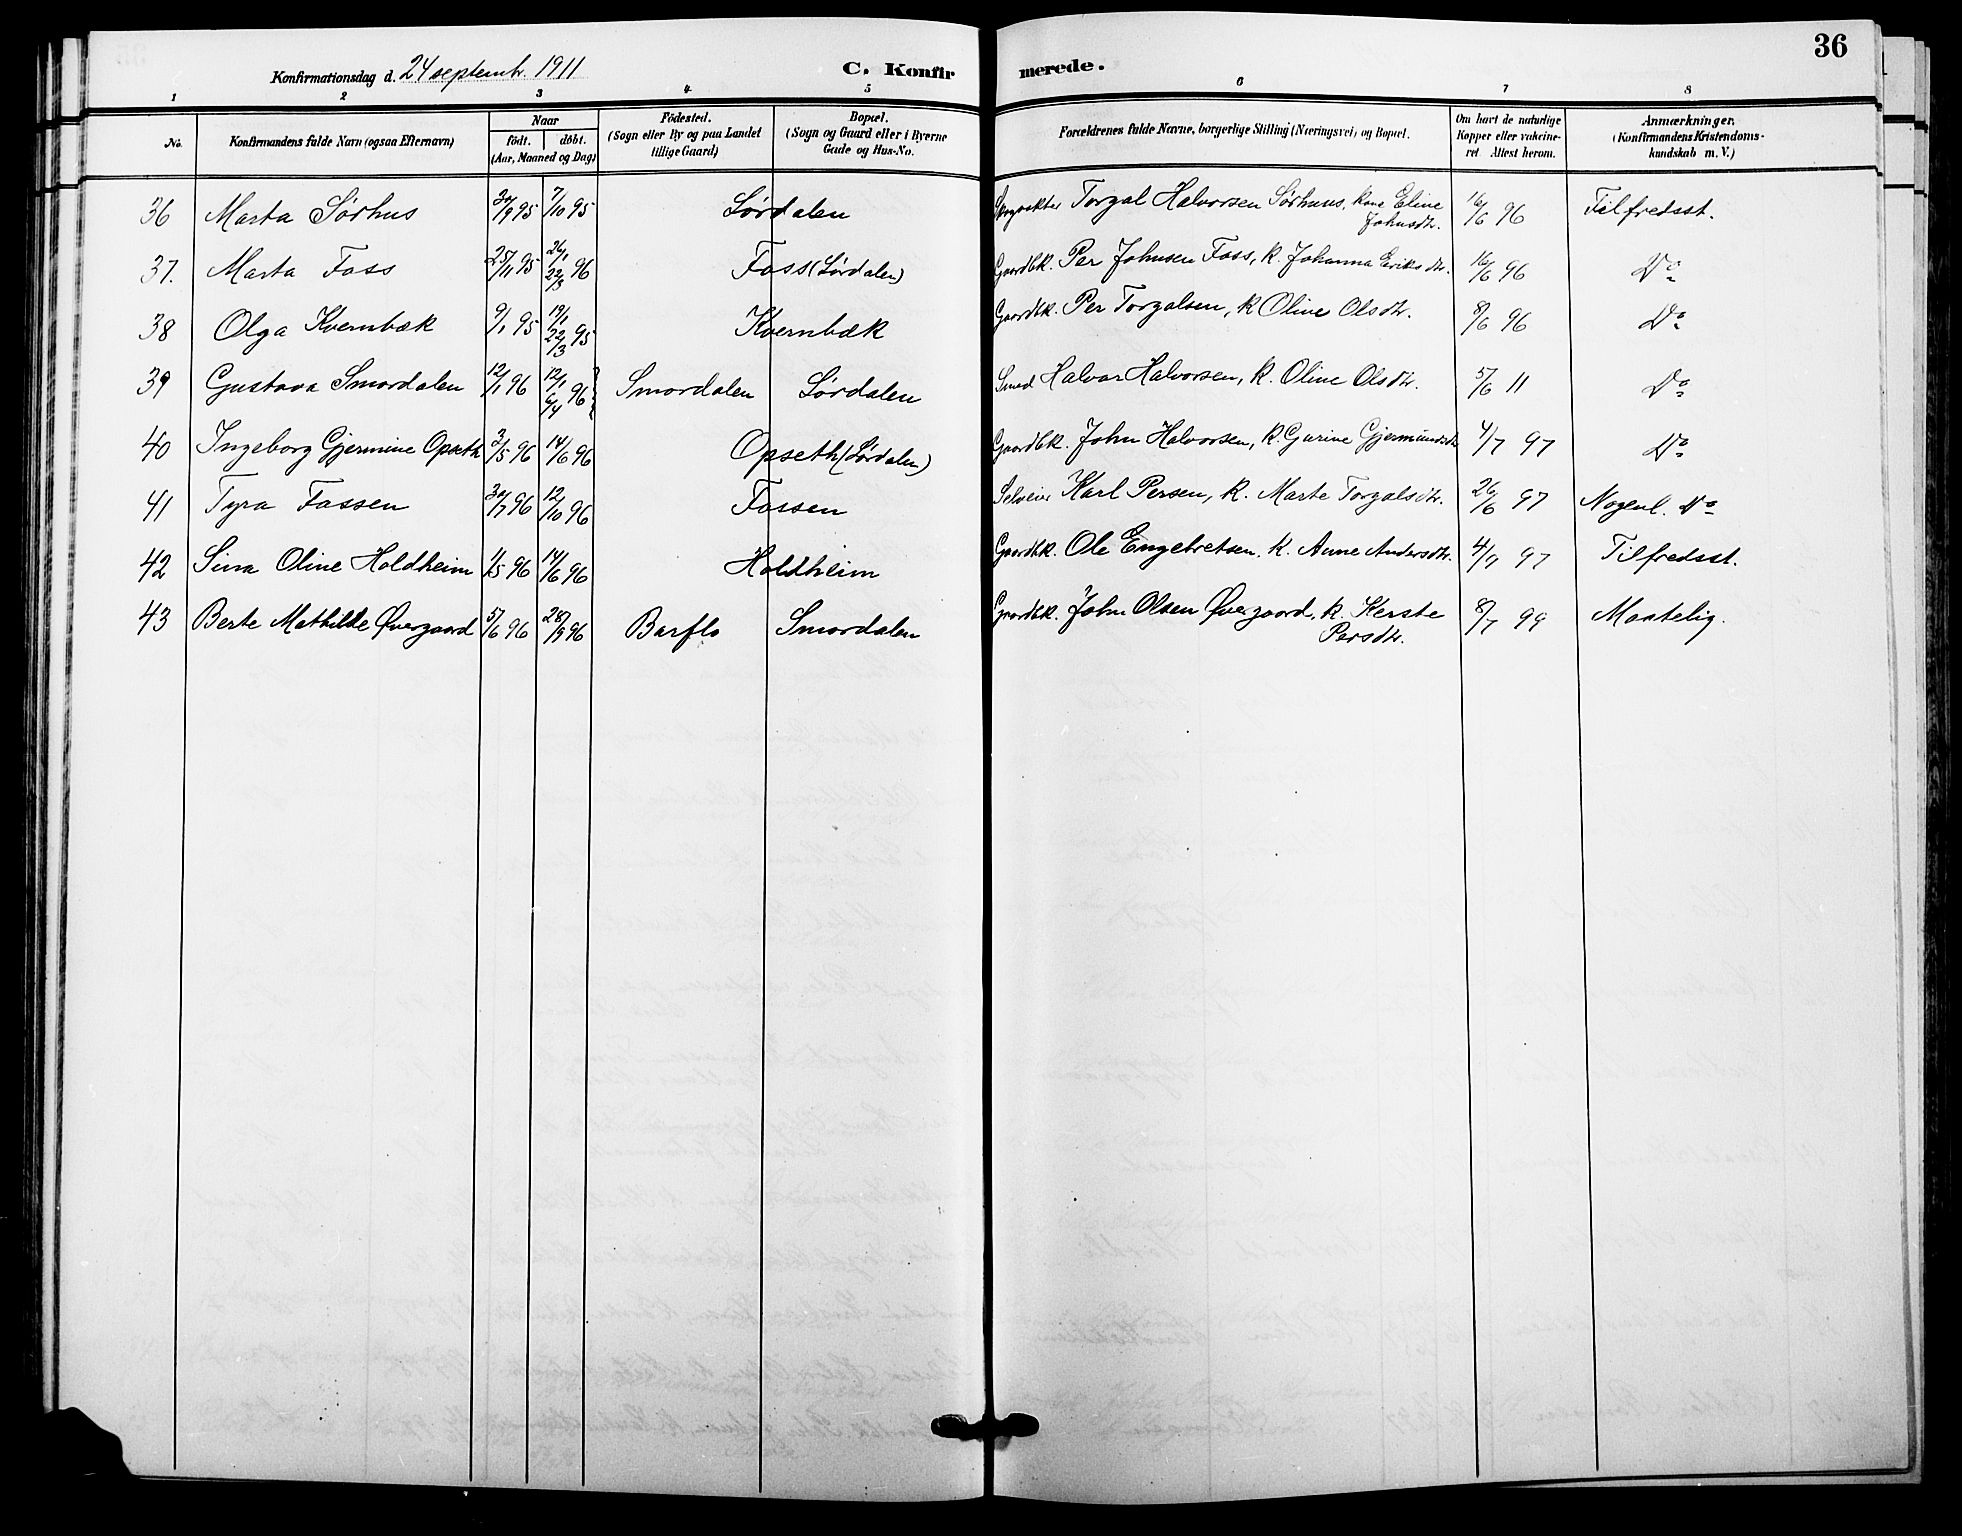 36
Konfirmationsdag d. 24 septembr. 1911
C. Konfir merede.
1 2 3 4 5 6 7 8
No.
Konfirmandens fulde Navn (ogsaa Efternavn)
Naar
födt. döbt.
(Aar, Maaned og Dag)
Födested.
(Sogn eller By og paa Landet
tillige Gaard)
Bopæl.
(Sogn og Gaard eller i Byerne
Gade og Hus-No.
Forældrenes fulde Navne, borgerlige Stilling (Næringsvei) og Bopæl.
Om havt de naturlige
Kopper eller vakcine-
ret. Attest herom.
Anmærkninger.
(Konfirmandens Kristendoms-
kundskab m. V.)
36 Marta Sörhus 30/9 95 7/10 95 Sørdalen Torgal Halvorsen Sörhuus, kone Eline Johnsdtr. 16/6 96 Tilfredsst.
37. Marta Foss 25/11 95 26/1 22/3 96 Foss (Sørdalen) Gaardbk. Per Johnsen Foss, k. Johanna Eriksdtr. 16/6 96 Do
38 Olga Kvernbæk 9/1 95 19/1 22/3 95 Kvernbæk Gaardbk. Per Torgalsen, k Oline Olsdtr. 8/6 96 Do
39 Gustava Smordalen 12/1 96 12/1 6/4 96 Smordalen Sørdalen Smed Halvor Halvorsen, k. Oline Olsdtr. 5/6 11 Do
40 Ingeborg Gjermine Opseth 3/5 96 14/6 96 Opseth (Sørdalen) Gaardbk. John Halvorsen, k. Gurine Gjermundsdtr 4/7 97 Do
41 Tyra Fossen 30/7 96 12/10 96 Fossen Selveier Karl Persen, k. Marte Torgalsdtr. 26/6 97 Nogenl. Do
42 Sina Oline Holdheim 1/5 96 14/6 96 Holdheim Gaardbk. Ole Engebretsen. k. Anne Andersdtr. 4/7 97 Tilfredsst.
43 Berte Mathilde Øvergaard 5/6 96 28/9 96 Barflo Smordalen Gaardbk. John Olsen Øvergaard, k. Kerste Persdtr. 8/7 99 Maatelig.